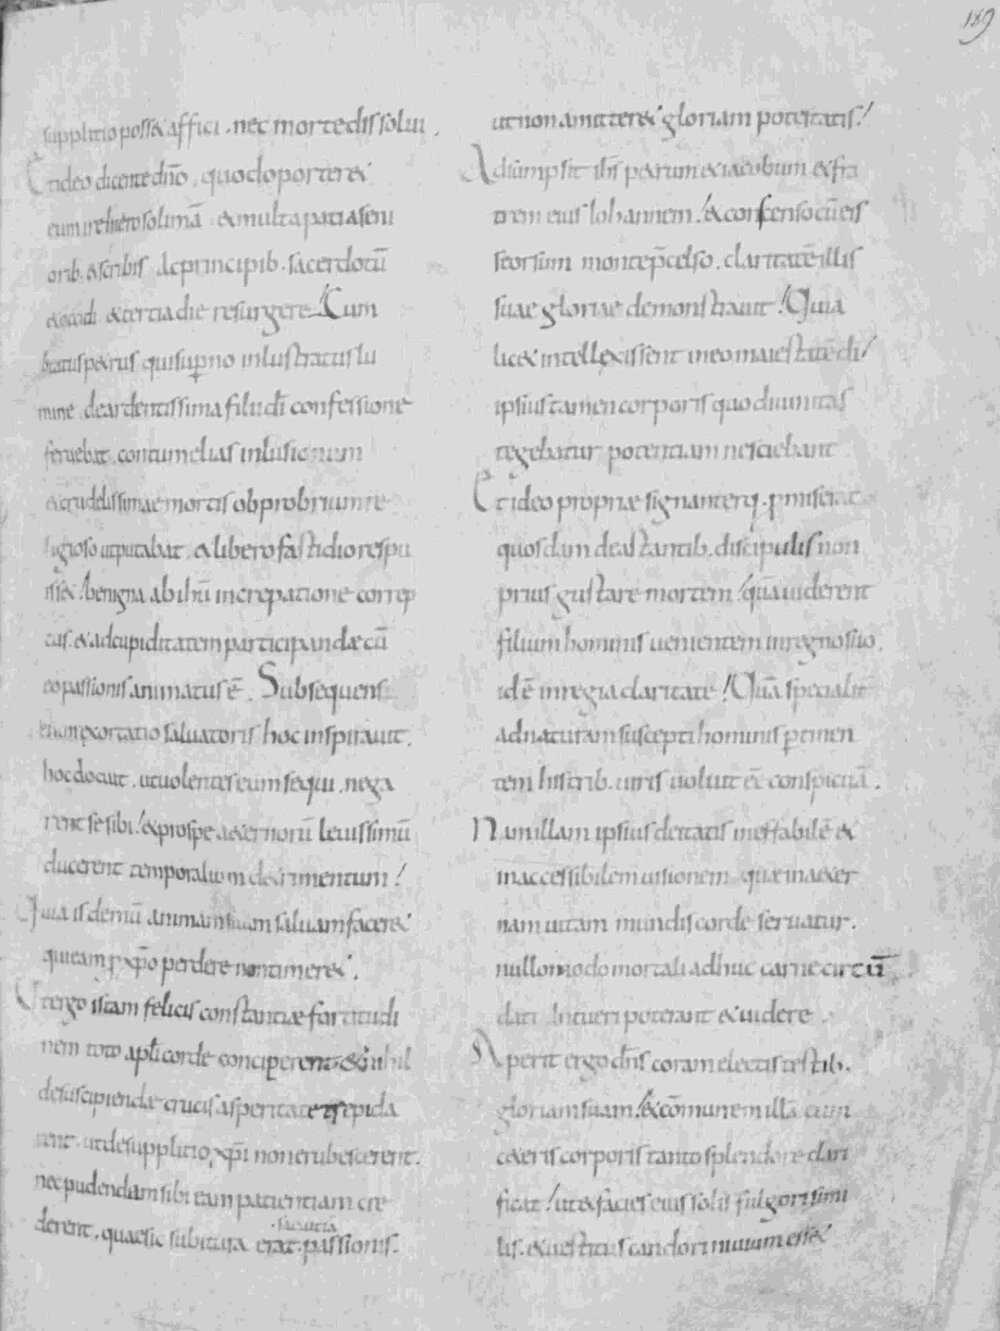 189
supplitio posse affici . nec morte dissolui .
Et ideo dicente dño . quod oporteret
eum ire hierosolimā & multa pati a seni
orib. & scribis ac principib. sacerdotū
& occidi & tertia die resurgere / Cum
beatus petrus qui sup̱no inlustratus lu
mine de ardentissima filii d̄i confessione
feruebat . contumelias inlusionum
& crudelissimae mortis obprobrium re
ligioso ut putabat . & libero fastidio respu
isset / benigna ab ihū increpatione correp
tus . & ad cupiditatem participandæ cū
eo passionis animatus ē . Subsequens
enim exortatio saluatoris hoc inspirauit .
hoc docuit . ut uolentes eum sequi . nega
rent se sibi / & pro spe aeternorū leuissimū
ducerent temporalium detrimentum /
Quia is demū animam suam saluam faceret
qui eam p xp̄o perdere non timeret .
Ut ergo istam felicis constantiæ fortitudi
nem toto apl̄i corde conciperent & nihil
de suscipiendæ crucis asperitate trepida
rent . ut de supplitio xp̄i non erubescerent .
nec pudendam sibi eam patientiam cre
derent . quae sic subitura erat . passionis .
. saeuitia
ut non amitteret gloriam potestatis /
Adsumpsit ihs petrum & iacobum & fra
trem eius iohannem / & conscenso cū eis
seorsum monte p̄celso . claritatē illis
suae gloriae demonstrauit / Quia
licet intellexissent in eo maiestatē d̄i /
ipsius tamen corporis quo diuinitas
tegebatur potentiam nesciebant
Et ideo propriæ signanterq . pmiserat
quosdam de adstantib. discipulis non
prius gustare mortem / quā uiderent
filium hominis uenientem in regno suo .
id ē in regia claritate / Quā specialit̄
ad naturam suscepti hominis ptinen
tem his trib. uiris uoluit eē conspicuā .
Nam illam ipsius deitatis ineffabilē &
inaccessibilem uisionem quæ in aeter
nam uitam mundis corde seruatur .
nullo modo mortali adhuc carne circū
dati intueri poterant & uidere .
Aperit ergo dn̄s coram electis testib.
gloriam suam / & cōmunem illā cum
ceteris corporis tanto splendore clari
ficat / ut & facies eius solis fulgori simi
lis . & uestitus candori niuium esset